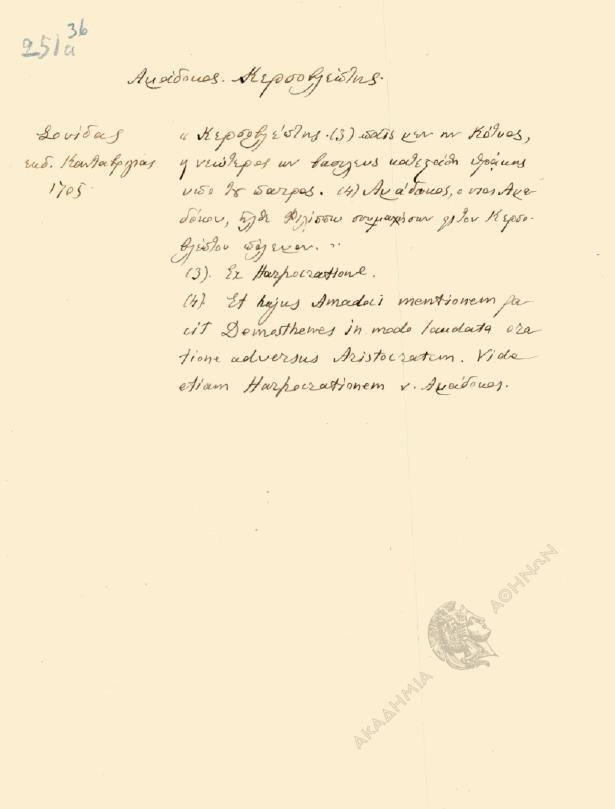 36
251a
Αμάδοκος. Κερσοβλέπτης.
Σουίδας
εκδ. Κανταβριγίας
1705.
" Κερσοβλέπτης. (3) παῖς μεν ην Κότυος,
η νεώτερος ων βασιλευς κατεστάθη Θράκης
υπο τοῦ πατρος. (4) Αμάδοκος, ο υιος Αμα-
δόκου, ἦλθε Φιλίππω συμμαχήσων εις τον Κερσο-
βλέπτου πόλεμον. "
(3). Ex Harpocratione.
(4). Et hujus Amadoci mentionem fa-
cit Demosthenes in modo laudata ora-
tione adversus Aristocratem. Vide
etiam Harpocrationem v. Αμάδοκος.
ΑΚΑΔΗΜΙΑ ΑΘΗΝΩΝ